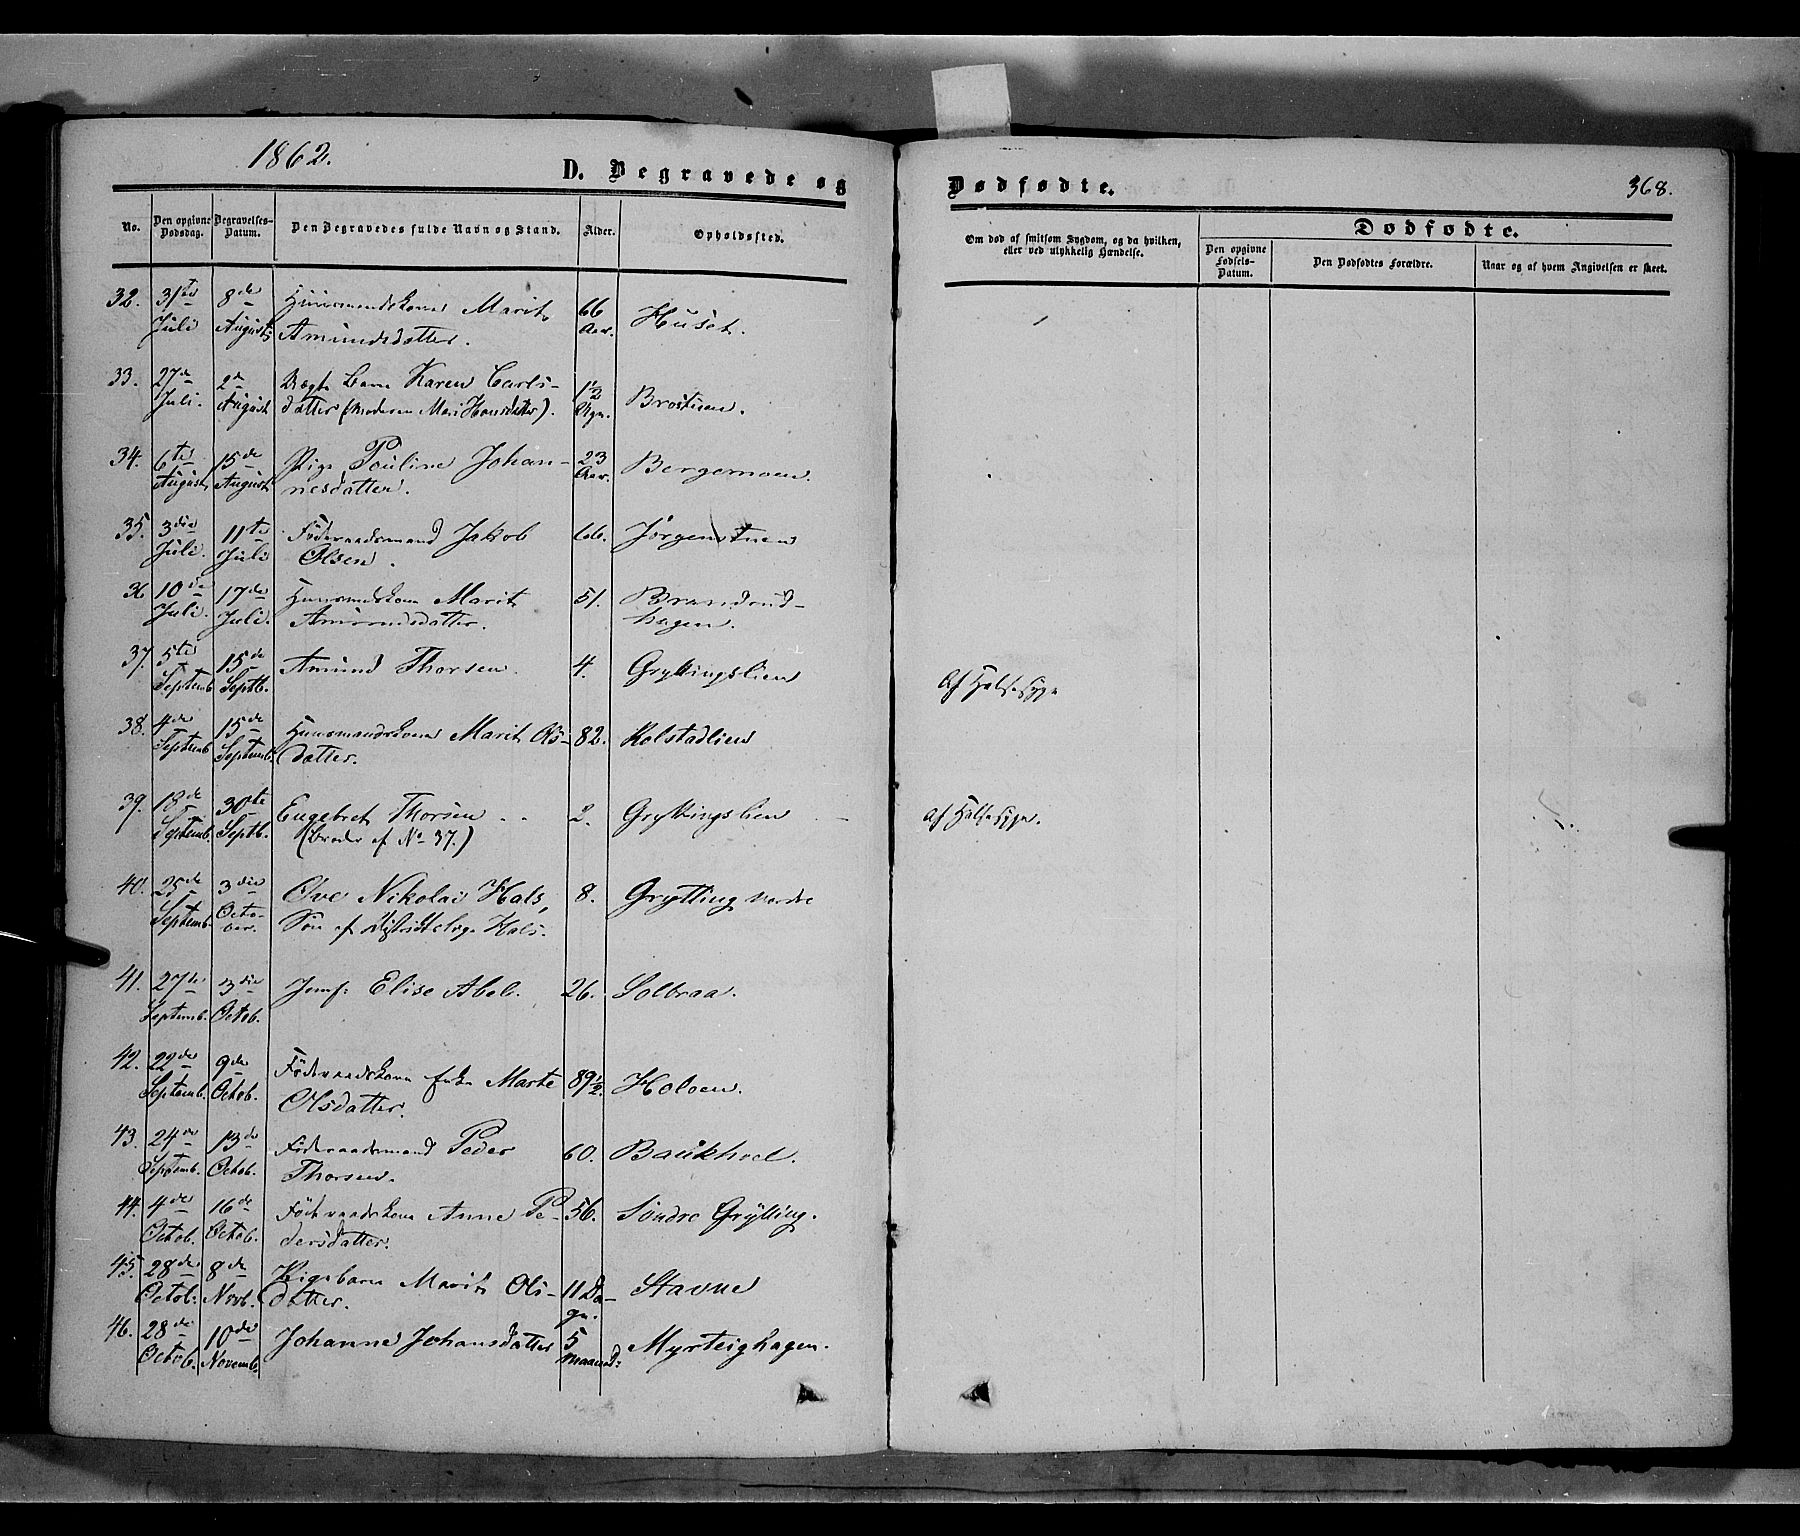 1862.
D. Begravede og
Dødfødte.
368.
No.
Den opgivne Dødsdag.
Begravelses-Datum.
Den Begravedes fulde Navn og Stand.
Alder.
Opholdssted.
Om død af smitsom Sygdom, og da hvilken,
eller ved ulykkelig Hændelse.
Dødfødte.
Den opgivne Fødsels-Datum.
Den Dødfødtes Forældre.
Naar og af hvem Angivelsen er skeet.
32. 31te 8de Huusmandskone Marit 66 Huset.
Juli August Amundsdatter. Aar.
33. 27de 2de Uægte Barn Karen Carls- 1 1/2
Juli. August datter (Moderen Mari Hansdatter). Brostuen.
34. 6te 15de Pige Pauline Johan- 23 Bergemoen.
August August nesdatter. Aar.
35. 3die 11te Föderaadsmand Jakob 66. Jörgenstuen
Juli. Juli Olsen.
36 10de 17de Huusmandskone Marit 51. Brandrud-
Juli. Juli. Amundsdatter. hagen.
37. 5te 15de Amund Thorsen. 4. Gryttingslien Af Halssyge
Septemb Septb.
38. 4de 15de Huusmandskone Marit Ols- 82. Kolstadlien
Septemb Septemb. datter.
39. 18de 30te Engebret Thorsen 2. Gryttingslien af Halssyge.
Septemb. Septb. (broder af No 37.)
40. 25de 3die Ove Nikolai Hals, 8. Grytting nordre
Septemb. Octo- Sön af Distriktslæge Hals.
ber.
41. 27de 3die Jomf: Elise Abel. 26. Solbraa.
Septemb. Octob.
42. 22de 9de Föderaadskone Enke Marte 89 1/2 Holoen.
Septemb. Octob. Olsdatter.
43. 24de 13de Föderaadsmand Peder 60. Baukhoel.
Septemb. Octob. Thorsen.
44. 4de 16de Föderaadskone Anne Pe- 56. Söndre Grytting.
Octob. Octob. dersdatter.
45. 28de 8de Pigebarn Marit Ols- 11 Da- Stavne
Octob. Novb. datter. ge.
46. 28de 10de Johanne Johansdatter 5 Myrteighagen.
Octob. Novemb. Maaned: